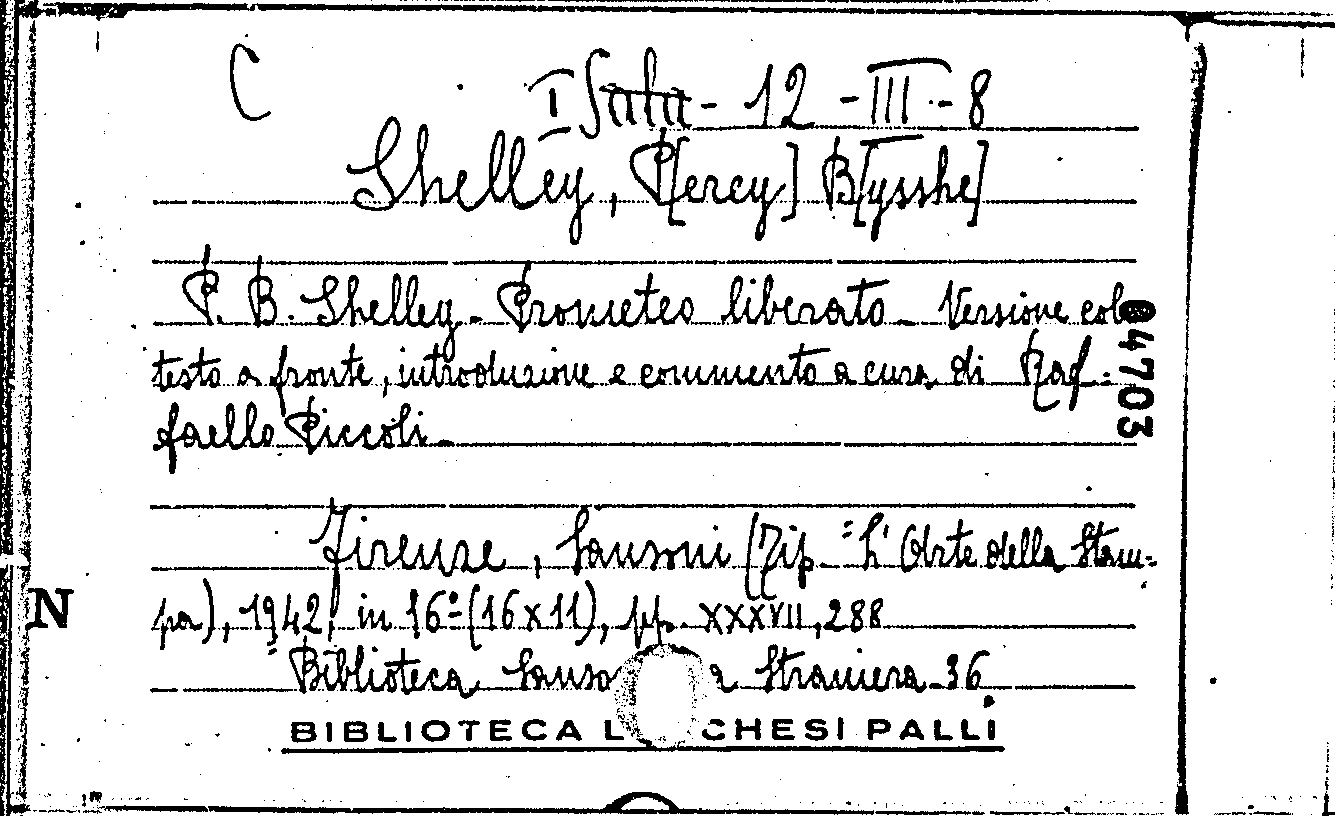 C
I Sala - 12 - III - 8
Shelley, P[ercy] B[ysshe]
P. B. Shelley - Prometeo liberato - Versione col
testo a fronte, introduzione e commento a cura di Raf-
faello Piccoli -
84703
Firenze, Sansoni (Tip. "L'Arte della Stam-
pa), 1942, in 16º (16x11), pp. XXXVII, 288
N
Biblioteca Straniera - 36
BIBLIOTECA L CHESI PALLI